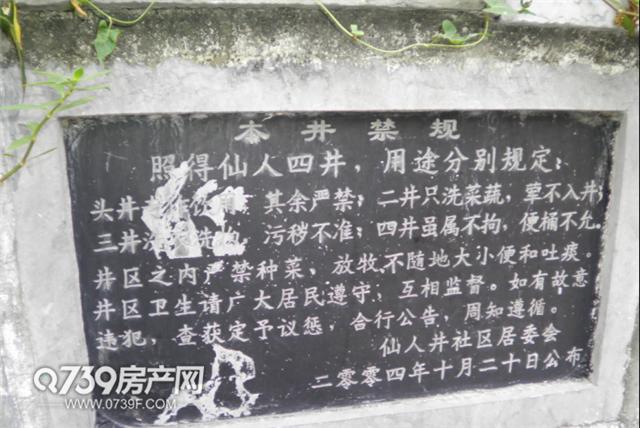 本井禁规
照得仙人四井，用途分别规定：
头井 饮用，其余严禁；二井只洗菜蔬，荤不入井；
三井 洗 ，污秽不准；四井虽属不拘，便桶不允。
井区之内严禁种菜，放牧，不随地大小便和吐痰。
井区卫生请广大居民遵守，互相监督。如有故意
违犯，查获定予议惩，合行公告，周知遵循。
仙人井社区居委会
二零零四年十月二十日公布
0739房产网
www.0739F.com